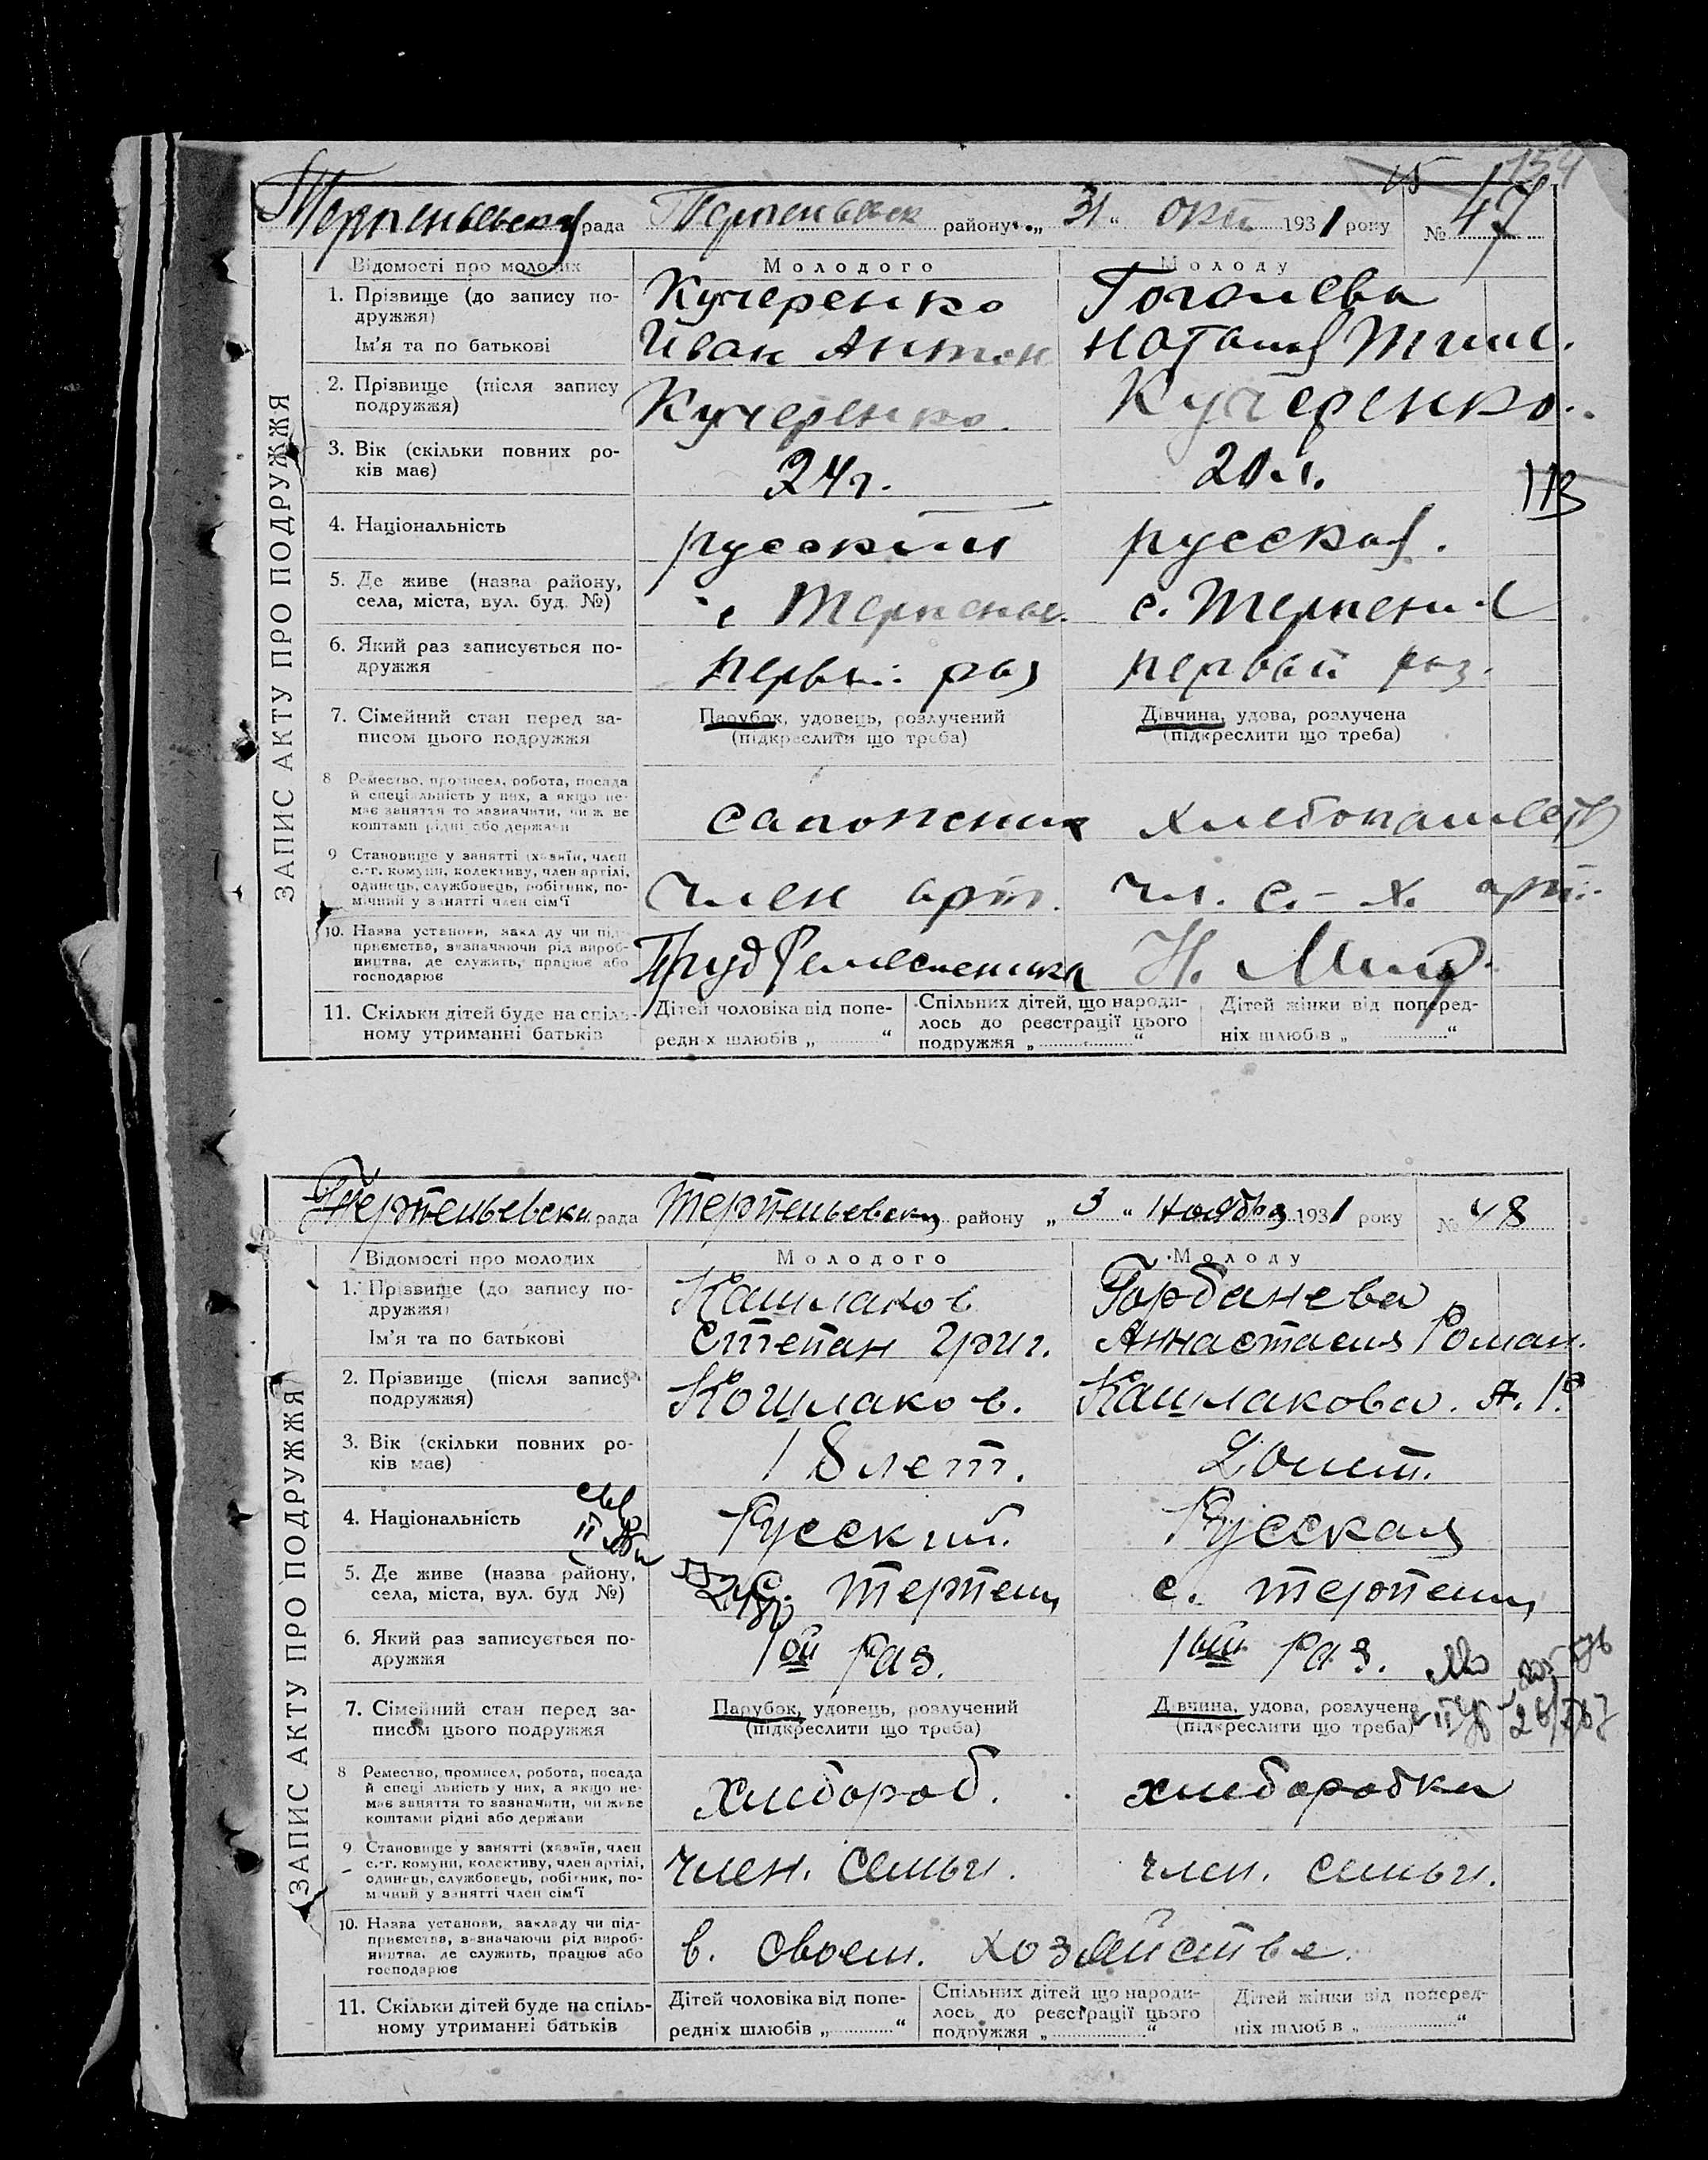 154
Терпеньевская рада Терпеньевск району „ 31 “ окт 1931 року № 47
Відомості про молодих Молодого Молоду
1. Прізвище (до запису по-
дружжя)
Кучеренко Гоголева
Ім'я та по батькові Иван Антон Наталья Тим.
2. Прізвище (після запису
подружжя)
Кучеренко. Кучеренко.
3. Вік (скільки повних ро-
ків має)
24 г. 20 л.
4. Національність русский русская.
5. Де живе (назва району,
села, міста, вул. буд. №)
с Терпенье. с. Терпени
6. Який раз записується по-
дружжя
первый раз первый раз.
7. Сімейний стан перед за-
писом цього подружжя
Парубок, удовець, розлучений
(підкреслити що треба)
Дівчина, удова, розлучена
(підкреслити що треба)
8 Ремество, промисел, робота, посада
й спеціяльність у них, а якщо не-
має заняття то зазначити, чи живе
коштами рідні або держави
сапожник
9 Становище у занятті (хазяїн, член
с.-г. комуни, колективу, член артілі,
одинець, службовець, робітник, по-
мічний у занятті член сім'ї
член арт. чл. с.-х. арт.
10. Назва установи, закладу чи під-
приємства, зазначаючи рід вироб-
ництва, де служить, працює або
господарює
Труд Ремесленика Н. Мир
11. Скільки дітей буде на спіль-
ному утриманні батьків
Дітей чоловіка від попе-
редніх шлюбів „ “
Спільних дітей, що народи-
лось до реєстрації цього
подружжя „ “
Дітей жінки від поперед-
ніх шлюбів „ “
ЗАПИС АКТУ ПРО ПОДРУЖЖЯ
Терпеньевски рада Терпеньевски району „ 3 “ Ноября 1931 року № 48
Відомості про молодих Молодого Молоду
1. Прізвище (до запису по-
дружжя)
Кашлаков Горбанева
Ім'я та по батькові Степан Григ. Аннастасия Роман.
2. Прізвище (після запису
подружжя)
Кошлаков. Кашлакова. А. Р.
3. Вік (скільки повних ро-
ків має)
18 лет. 20 лет.
4. Національність Русский. Русская
5. Де живе (назва району,
села, міста, вул. буд №)
с. Терпени с. Терпени
6. Який раз записується по-
дружжя
1ой раз. 1ый раз.
7. Сімейний стан перед за-
писом цього подружжя
Парубок, удовець, розлучений
(підкреслити що треба)
Дівчина, удова, розлучена
(підкреслити що треба)
8 Ремество, промисел, робота, посада
й спеціяльність у них, а якщо не-
має заняття то зазначити, чи живе
коштами рідні або держави
хлебороб. хлеборобка
9 Становище у занятті (хазяїн, член
с.-г. комуни, колективу, член артілі,
одинець, службовець, робітник, по-
мічний у занятті член сім'ї
член. семьи. член. семьи.
10. Назва установи, закладу чи під-
приємства, зазначаючи рід вироб-
ництва, де служить, працює або
господарює
в. своем. хозяйстве.
11. Скільки дітей буде на спіль-
ному утриманні батьків
Дітей чоловіка від попе-
редніх шлюбів „ “
Спільних дітей що народи-
лось до реєстрації цього
подружжя „ “
Дітей жінки від поперед-
ніх шлюбів „ “
ЗАПИС АКТУ ПРО ПОДРУЖЖЯ